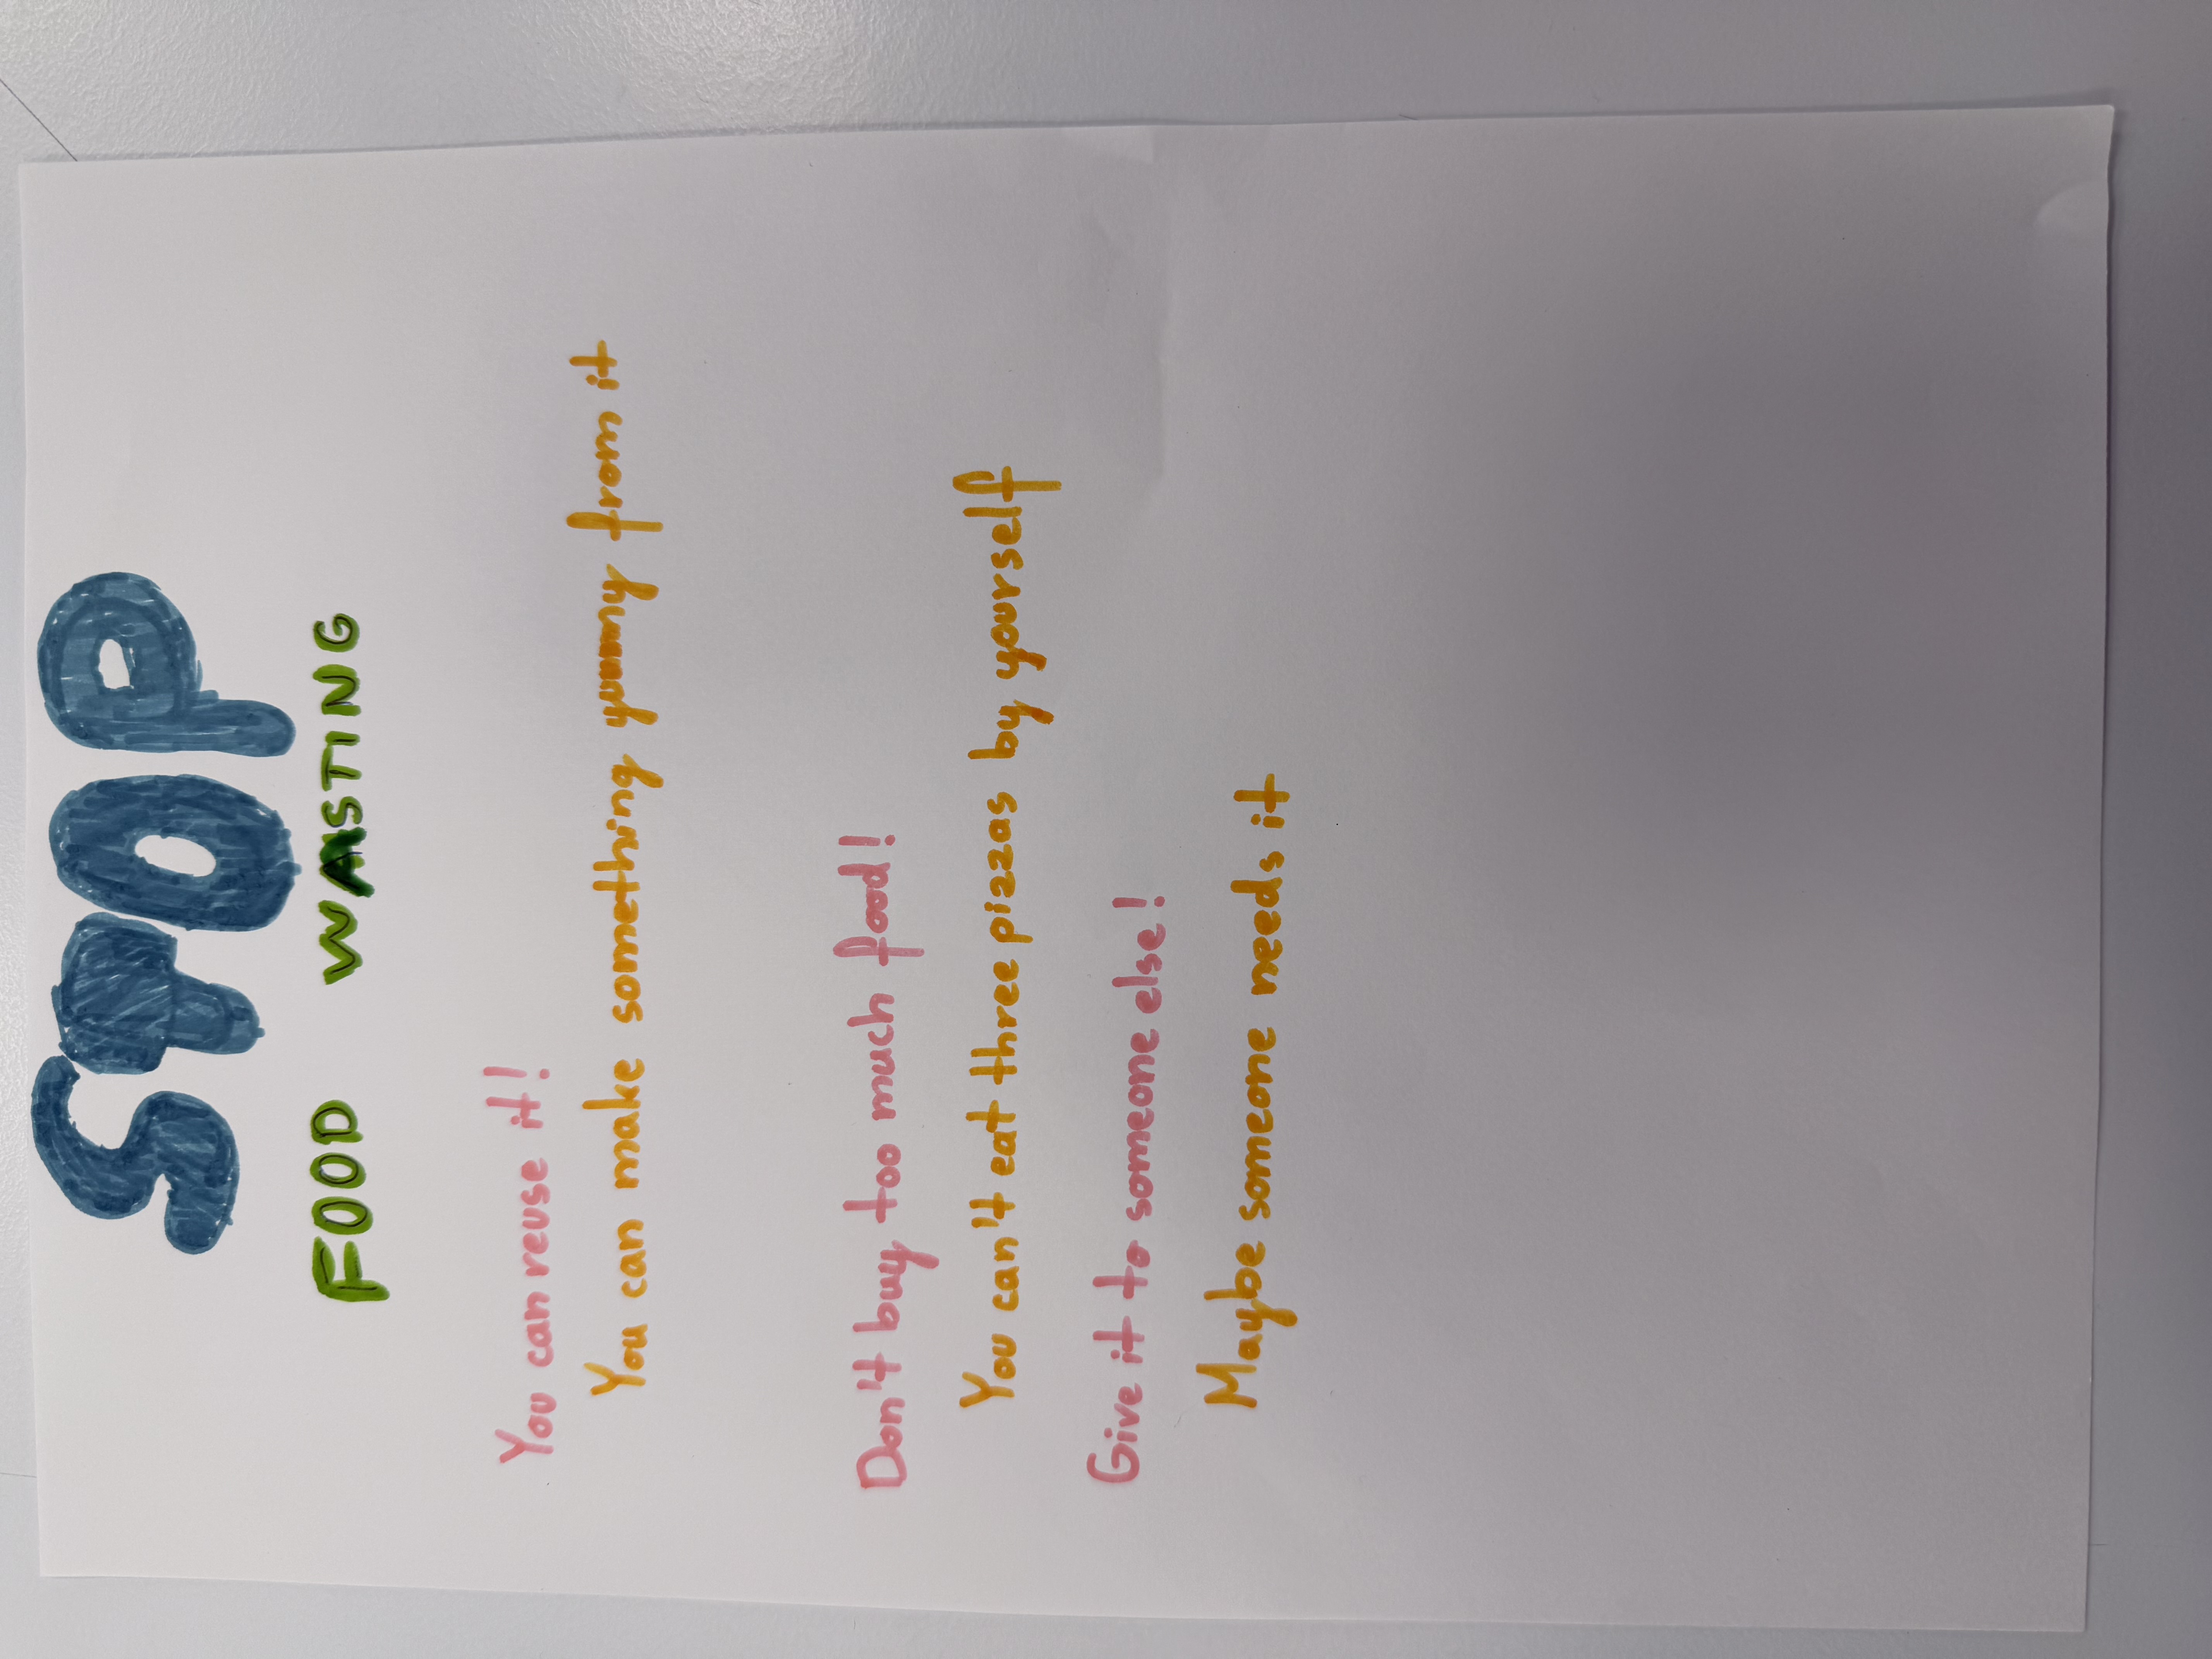 STOP
FOOD WASTING
You can reuse it!
You can make something yummy from it
Don't buy too much food!
You can't eat three pizzas by yourself
Give it to someone else!
Maybe someone needs it